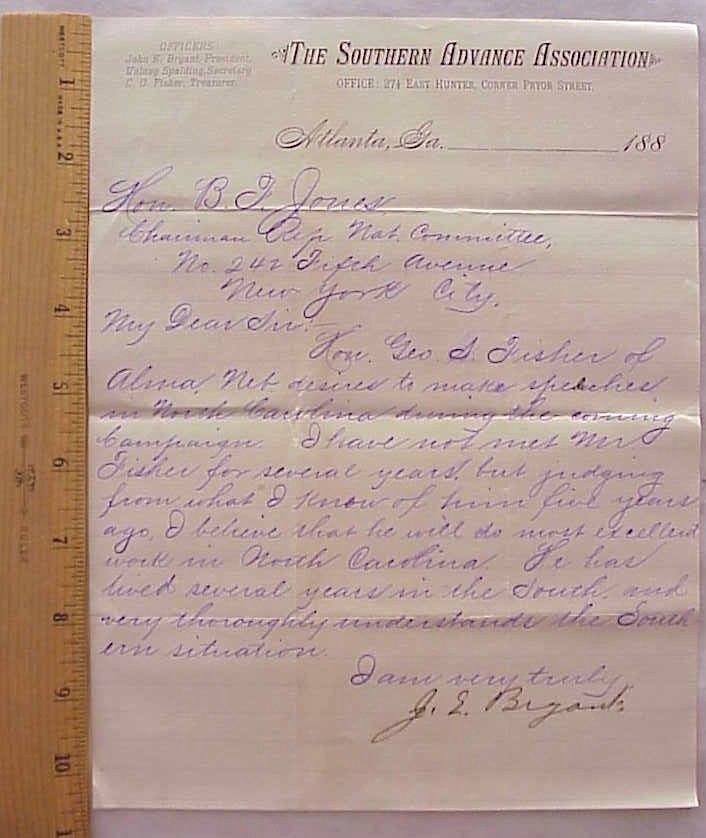 OFFICERS
John E. Bryant, President.
Volney Spalding, Secretary
C. O. Fisher, Treasurer.
THE SOUTHERN ADVANCE ASSOCIATION
OFFICE: 27½ EAST HUNTER, CORNER PRYOR STREET.
Atlanta, Ga. 188
Hon. B. F. Jones,
Chairman Rep. Nat. Committee,
No. 242 Fifth Avenue
New York City.
My Dear Sir:—
Hon. Geo. S. Fisher of
Alma, Neb desires to make speeches
in North Carolina during the coming
Campaign. I have not met Mr
Fisher for several years, but judging
from what I knew of him five years
ago, I believe that he will do most excellent
work in North Carolina. He has
lived several years in the South, and
very thoroughly understands the South
ern situation.
I am very truly
J. E. Bryant.
1
2
3
4
5
6
7
8
9
10